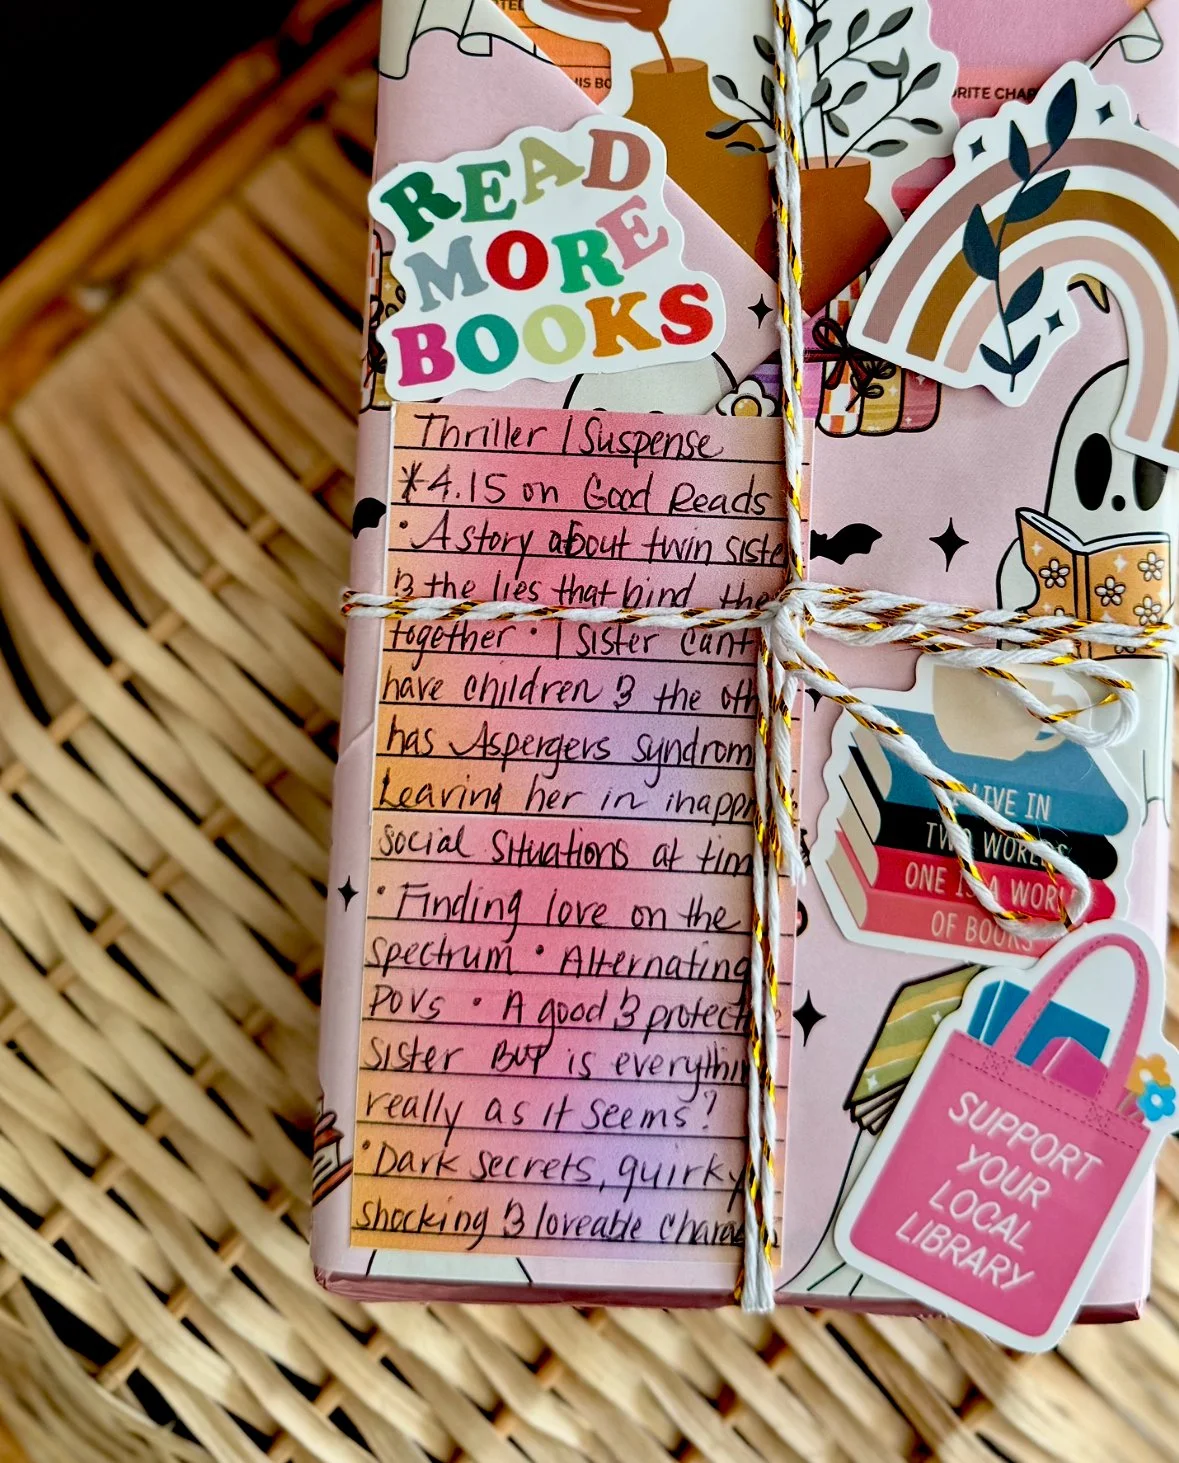 IS BO
RITE CHAR
READ
MORE
BOOKS
Thriller | Suspense
*4.15 on Good Reads
• A story about twin siste
& the lies that bind the
together • 1 sister can't
have children & the oth
has Aspergers syndrom
Leaving her in inappr
social situations at tim
• Finding love on the
spectrum • Alternating
POVs • A good & protect
sister BUT is everythin
really as it seems?
• Dark secrets, quirky
shocking & loveable charac
LIVE IN
TWO WORLDS
ONE IS A WORLD
OF BOOKS
SUPPORT
YOUR
LOCAL
LIBRARY